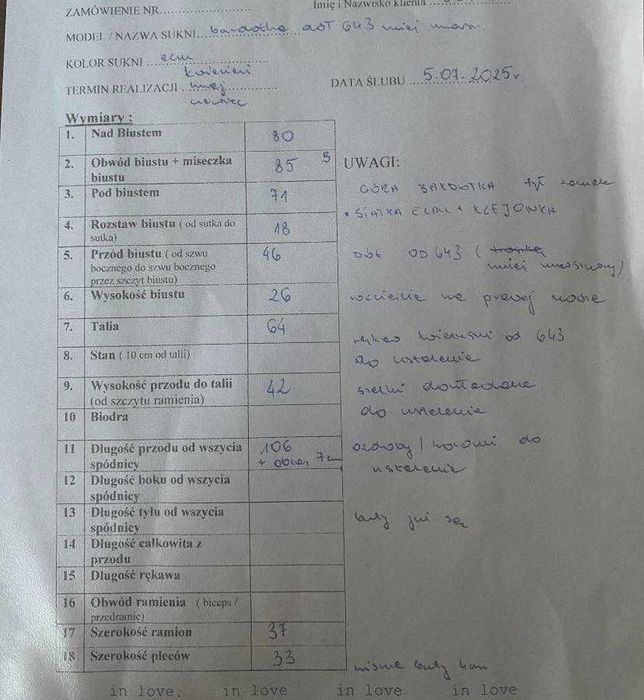 ZAMÓWIENIE NR
Imię i Nazwisko klienta
MODEL / NAZWA SUKNI bardotka dół 643 mniej
KOLOR SUKNI ecru
kwiecień
TERMIN REALIZACJI maj
czerwiec
DATA ŚLUBU 5.07.2025r.
Wymiary :
1. Nad Biustem 80
2. Obwód biustu + miseczka biustu 85 B
UWAGI:
3. Pod biustem 71
GÓRA BARDOTKA tył zamek
4. Rozstaw biustu ( od sutka do sutka) 18
• SIATKA ELAN + KLEJONKA
5. Przód biustu ( od szwu bocznego do szwu bocznego przez szczyt biustu) 46
DÓŁ OD 643 ( troszkę
mniej marszczony)
6. Wysokość biustu 26
rozcięcie na prawej nodze
7. Talia 64
rękaw od 643
8. Stan ( 10 cm od talii)
do ustalenia
9. Wysokość przodu do talii (od szczytu ramienia) 42
szelki
do ustalenia
10 Biodra
11 Długość przodu od wszycia spódnicy 106
+ obcas 7cm
do
ustalenia
12 Długość boku od wszycia spódnicy
13 Długość tyłu od wszycia spódnicy
buty już są
14 Długość całkowita z przodu
15 Długość rękawa
16 Obwód ramienia ( biceps / przedramię)
17 Szerokość ramion 37
18 Szerokość pleców 33
buty
in love. in love in love in love